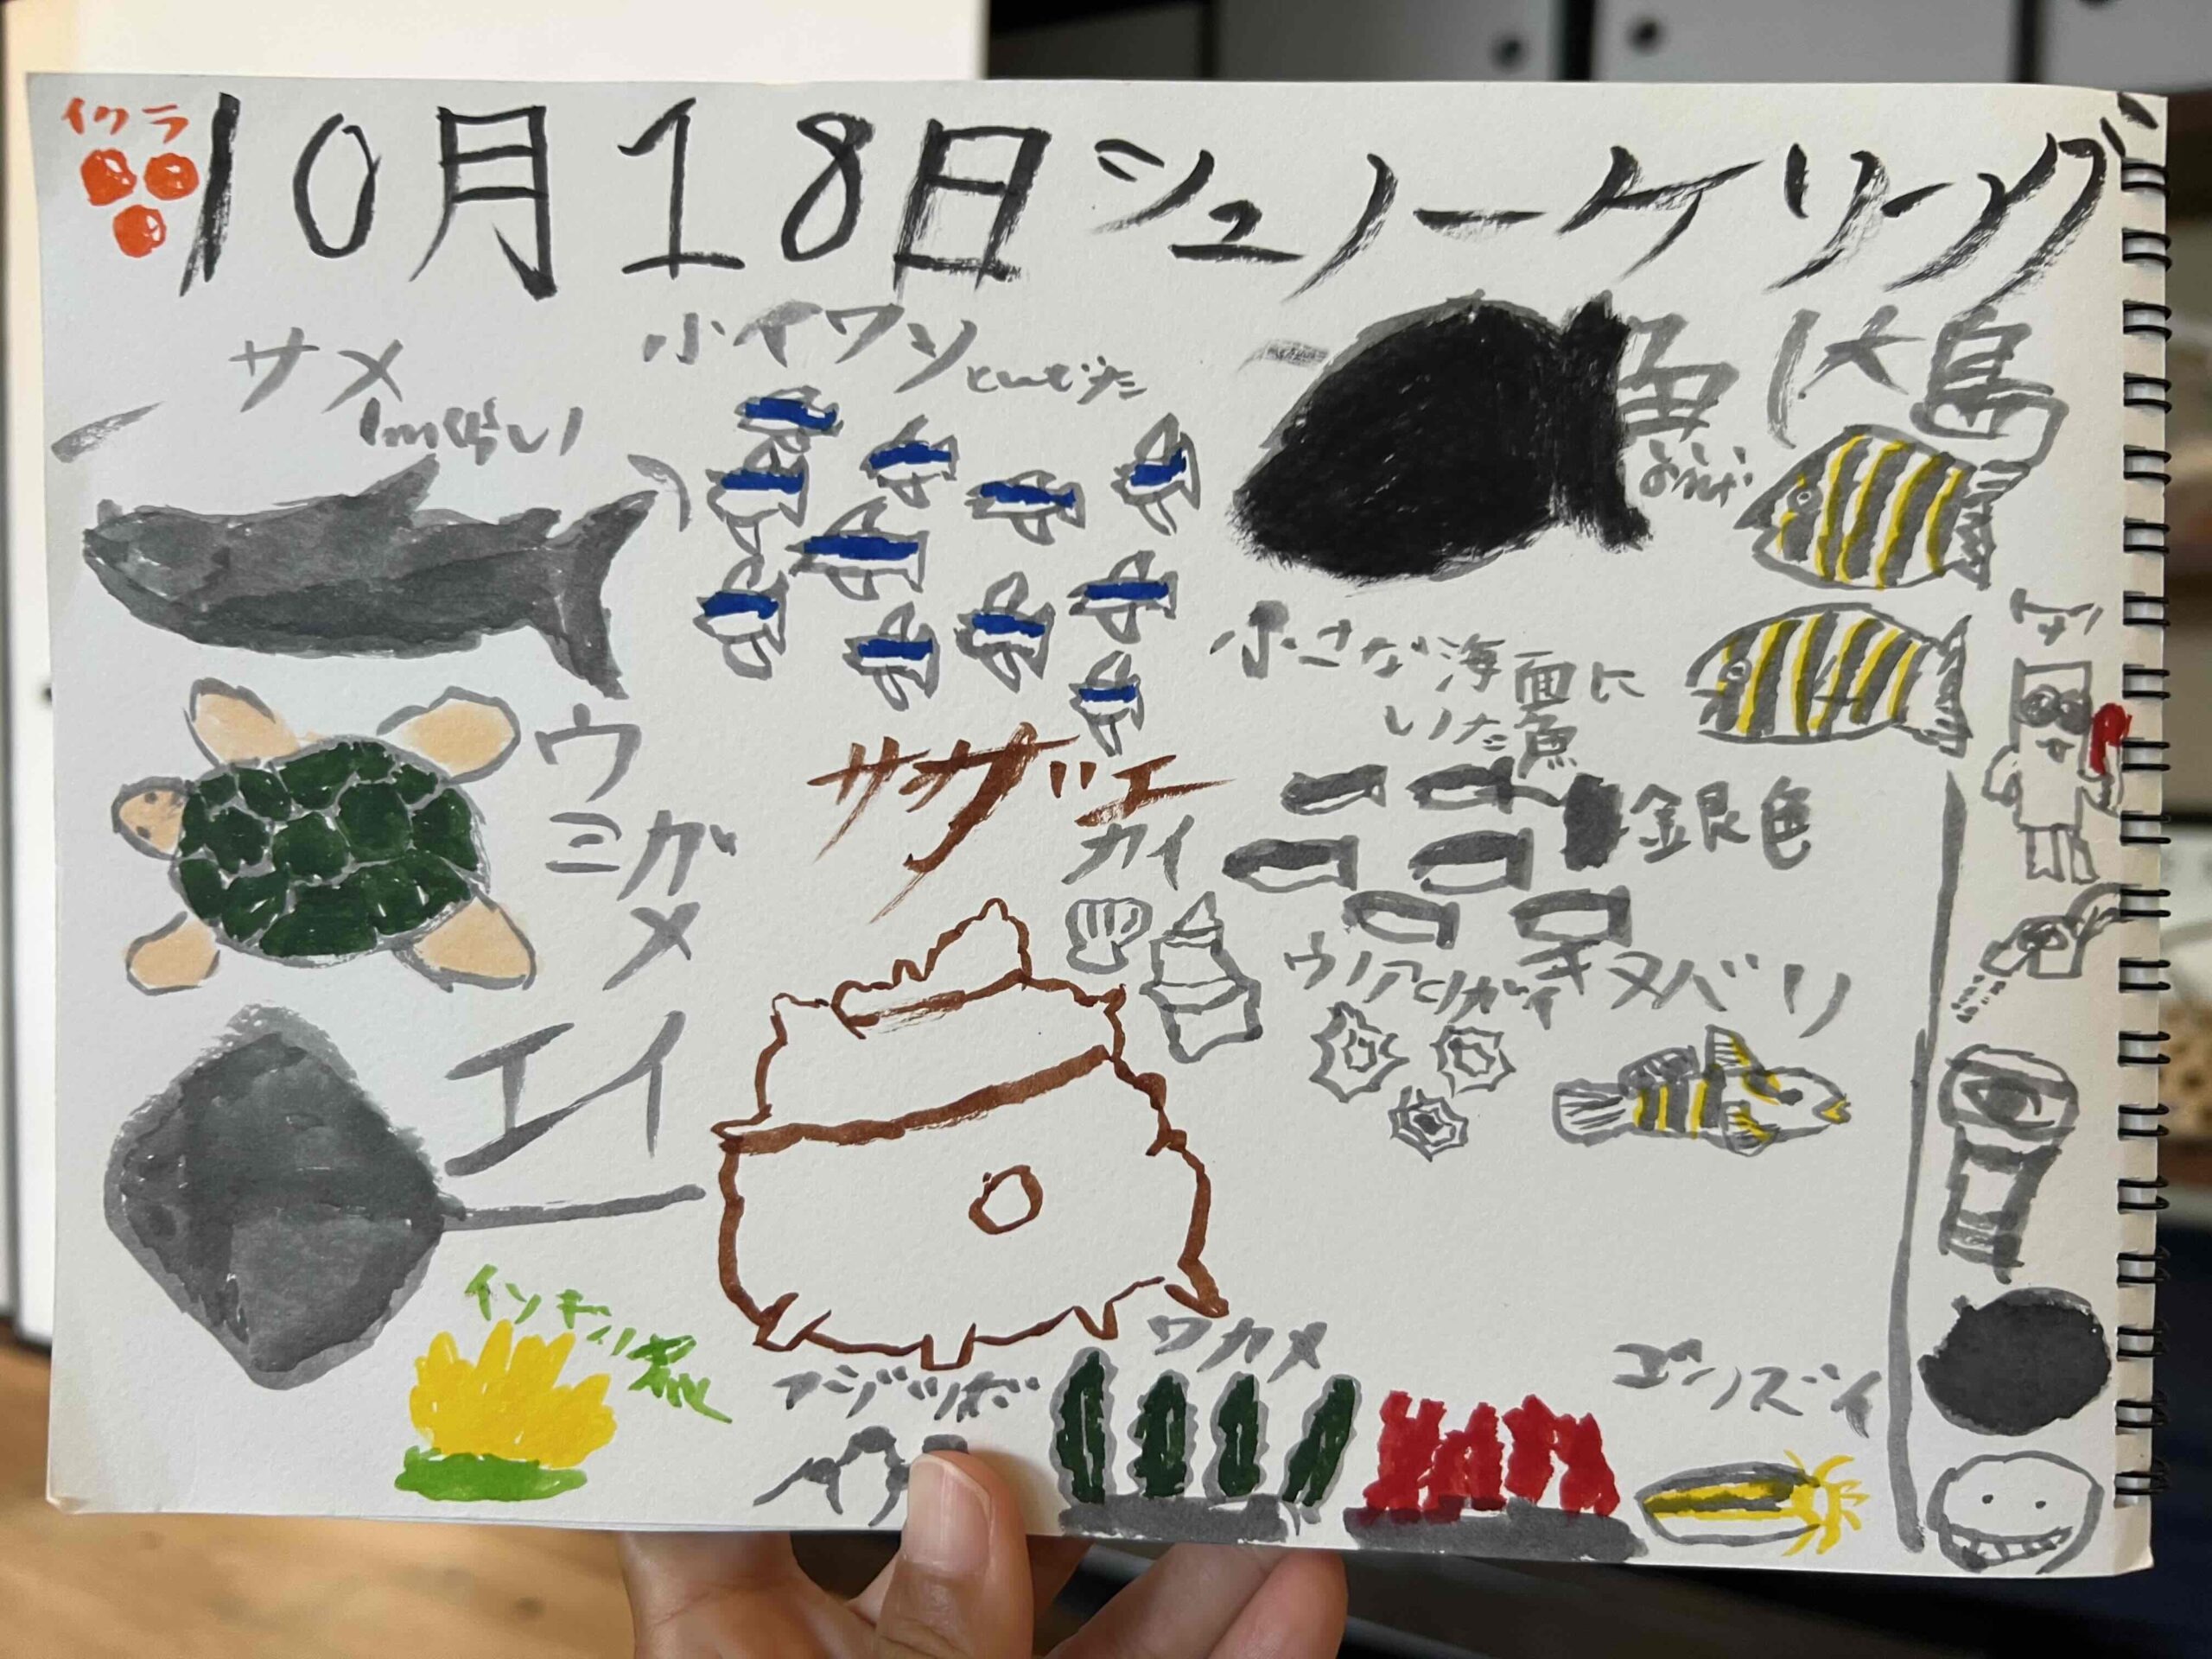 イクラ
10月18日シュノーケリング
サメ
1mぐらい
小イワシ
とんでいた
魚
大島
小さな海面に
いた魚
銀色
ウミガメ
サザエ
カイ
ウノアシガイ
キヌバリ
エイ
インギン
フジツボ
ワカメ
ゴンズイ